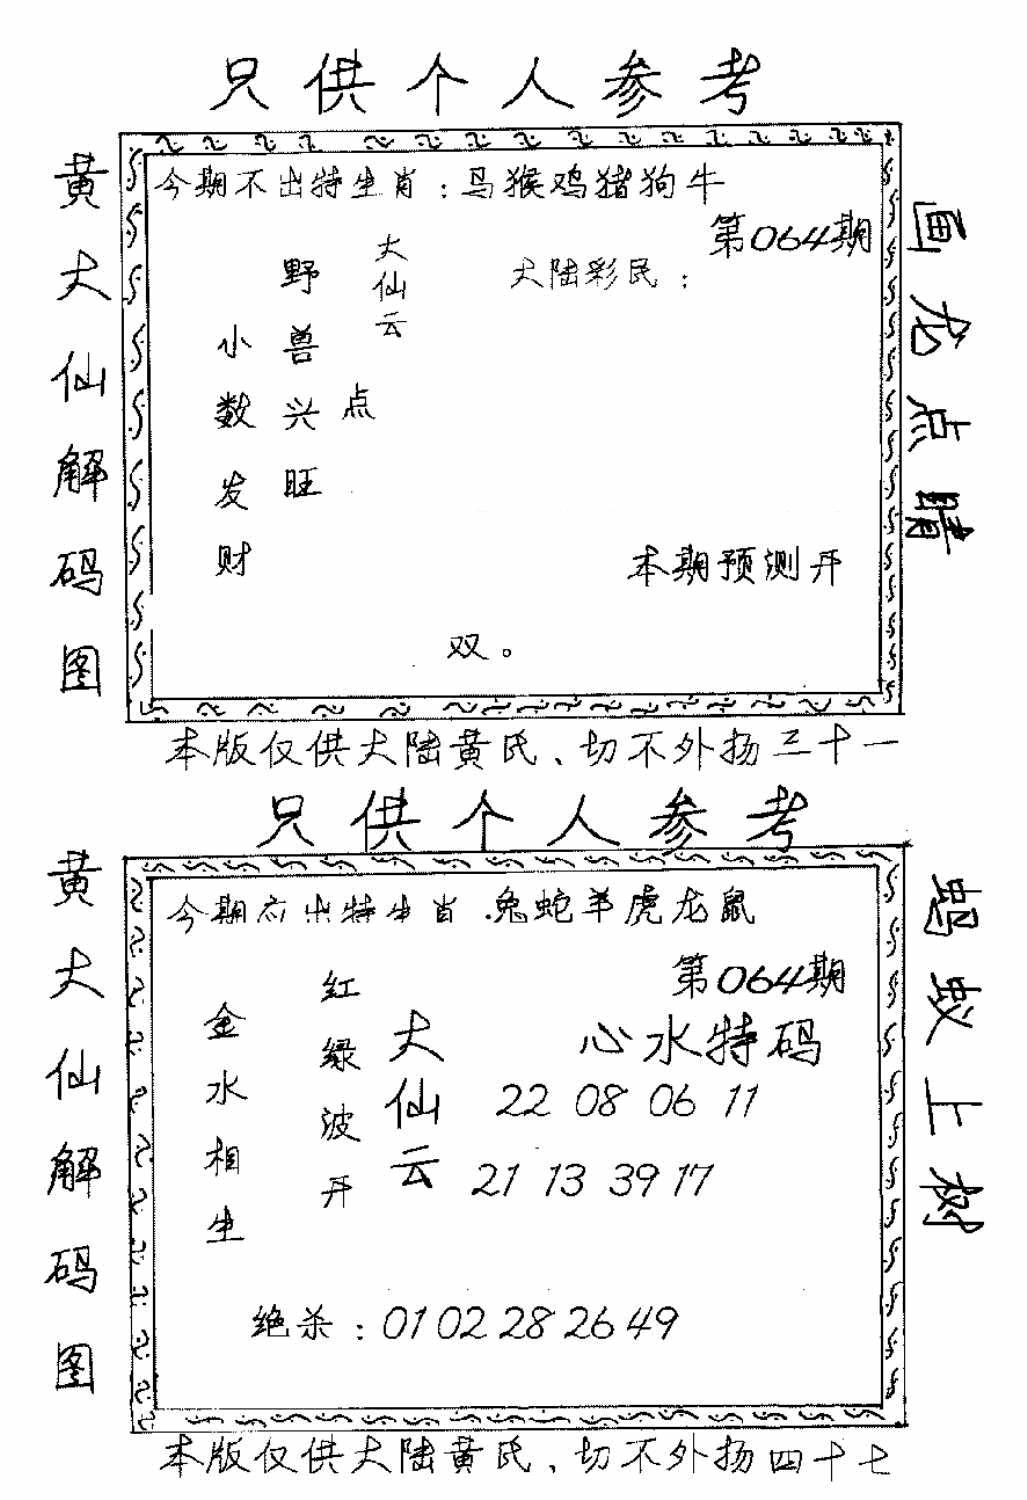 只供个人参考
黄大仙解码图
今期不出特生肖：马猴鸡猪狗牛
第064期
大陆彩民：
大仙云
点
野兽兴旺
小数发财
本期预测开
双。
画龙点睛
本版仅供大陆黄氏、切不外扬三十一
只供个人参考
黄大仙解码图
今期应出特生肖.兔蛇羊虎龙鼠
第064期
心水特码
大仙云
22 08 06 11
21 13 39 17
红绿波开
金水相生
绝杀：01 02 28 26 49
蚂蚁上树
本版仅供大陆黄氏、切不外扬四十七